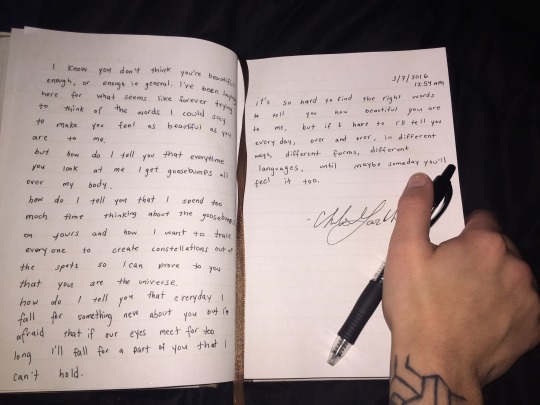 I know you don't think you're beautiful
enough, or enough in general. I've been laying
here for what seems like forever trying
to think of the words I could say
to make you feel as beautiful as you
are to me.
but how do I tell you that everytime
you look at me I get goosebumps all
over my body.
how do I tell you that I spend too
much time thinking about the goosebumps
on yours and how I want to trace
every one to create constellations out of
the spots so I can prove to you
that you are the universe.
how do I tell you that everyday I
fall for something new about you but I'm
afraid that if our eyes meet for too
long I'll fall for a part of you that I
can't hold.
3/7/2016
12:54 am
it's so hard to find the right words
to tell you how beautiful you are
to me, but if I have to I'll tell you
every day, over and over, in different
ways, different forms, different
languages, until maybe someday you'll
feel it too.